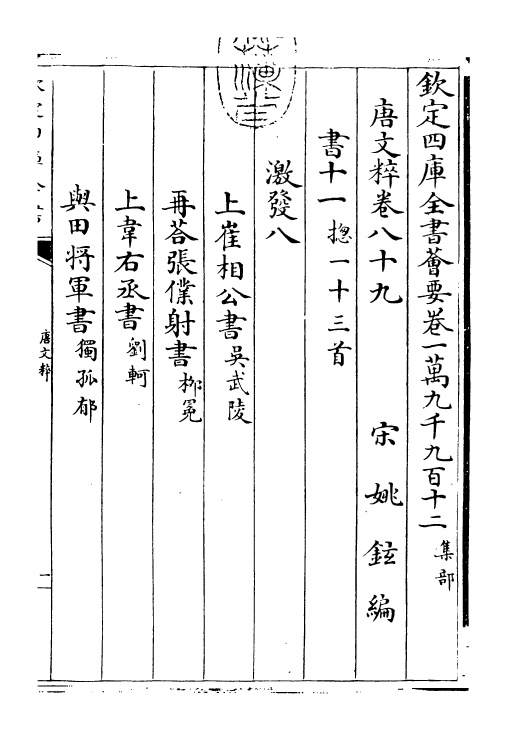 欽定四庫全書薈要卷一萬九千九百十二 集部
唐文粹卷八十九 宋 姚鉉 編
書十一 揔一十三首
激發八
上崔相公書 吳武陵
再荅張僕射書 柳冕
上韋右丞書 劉軻
與田將軍書 獨孤郁
唐文粹
一